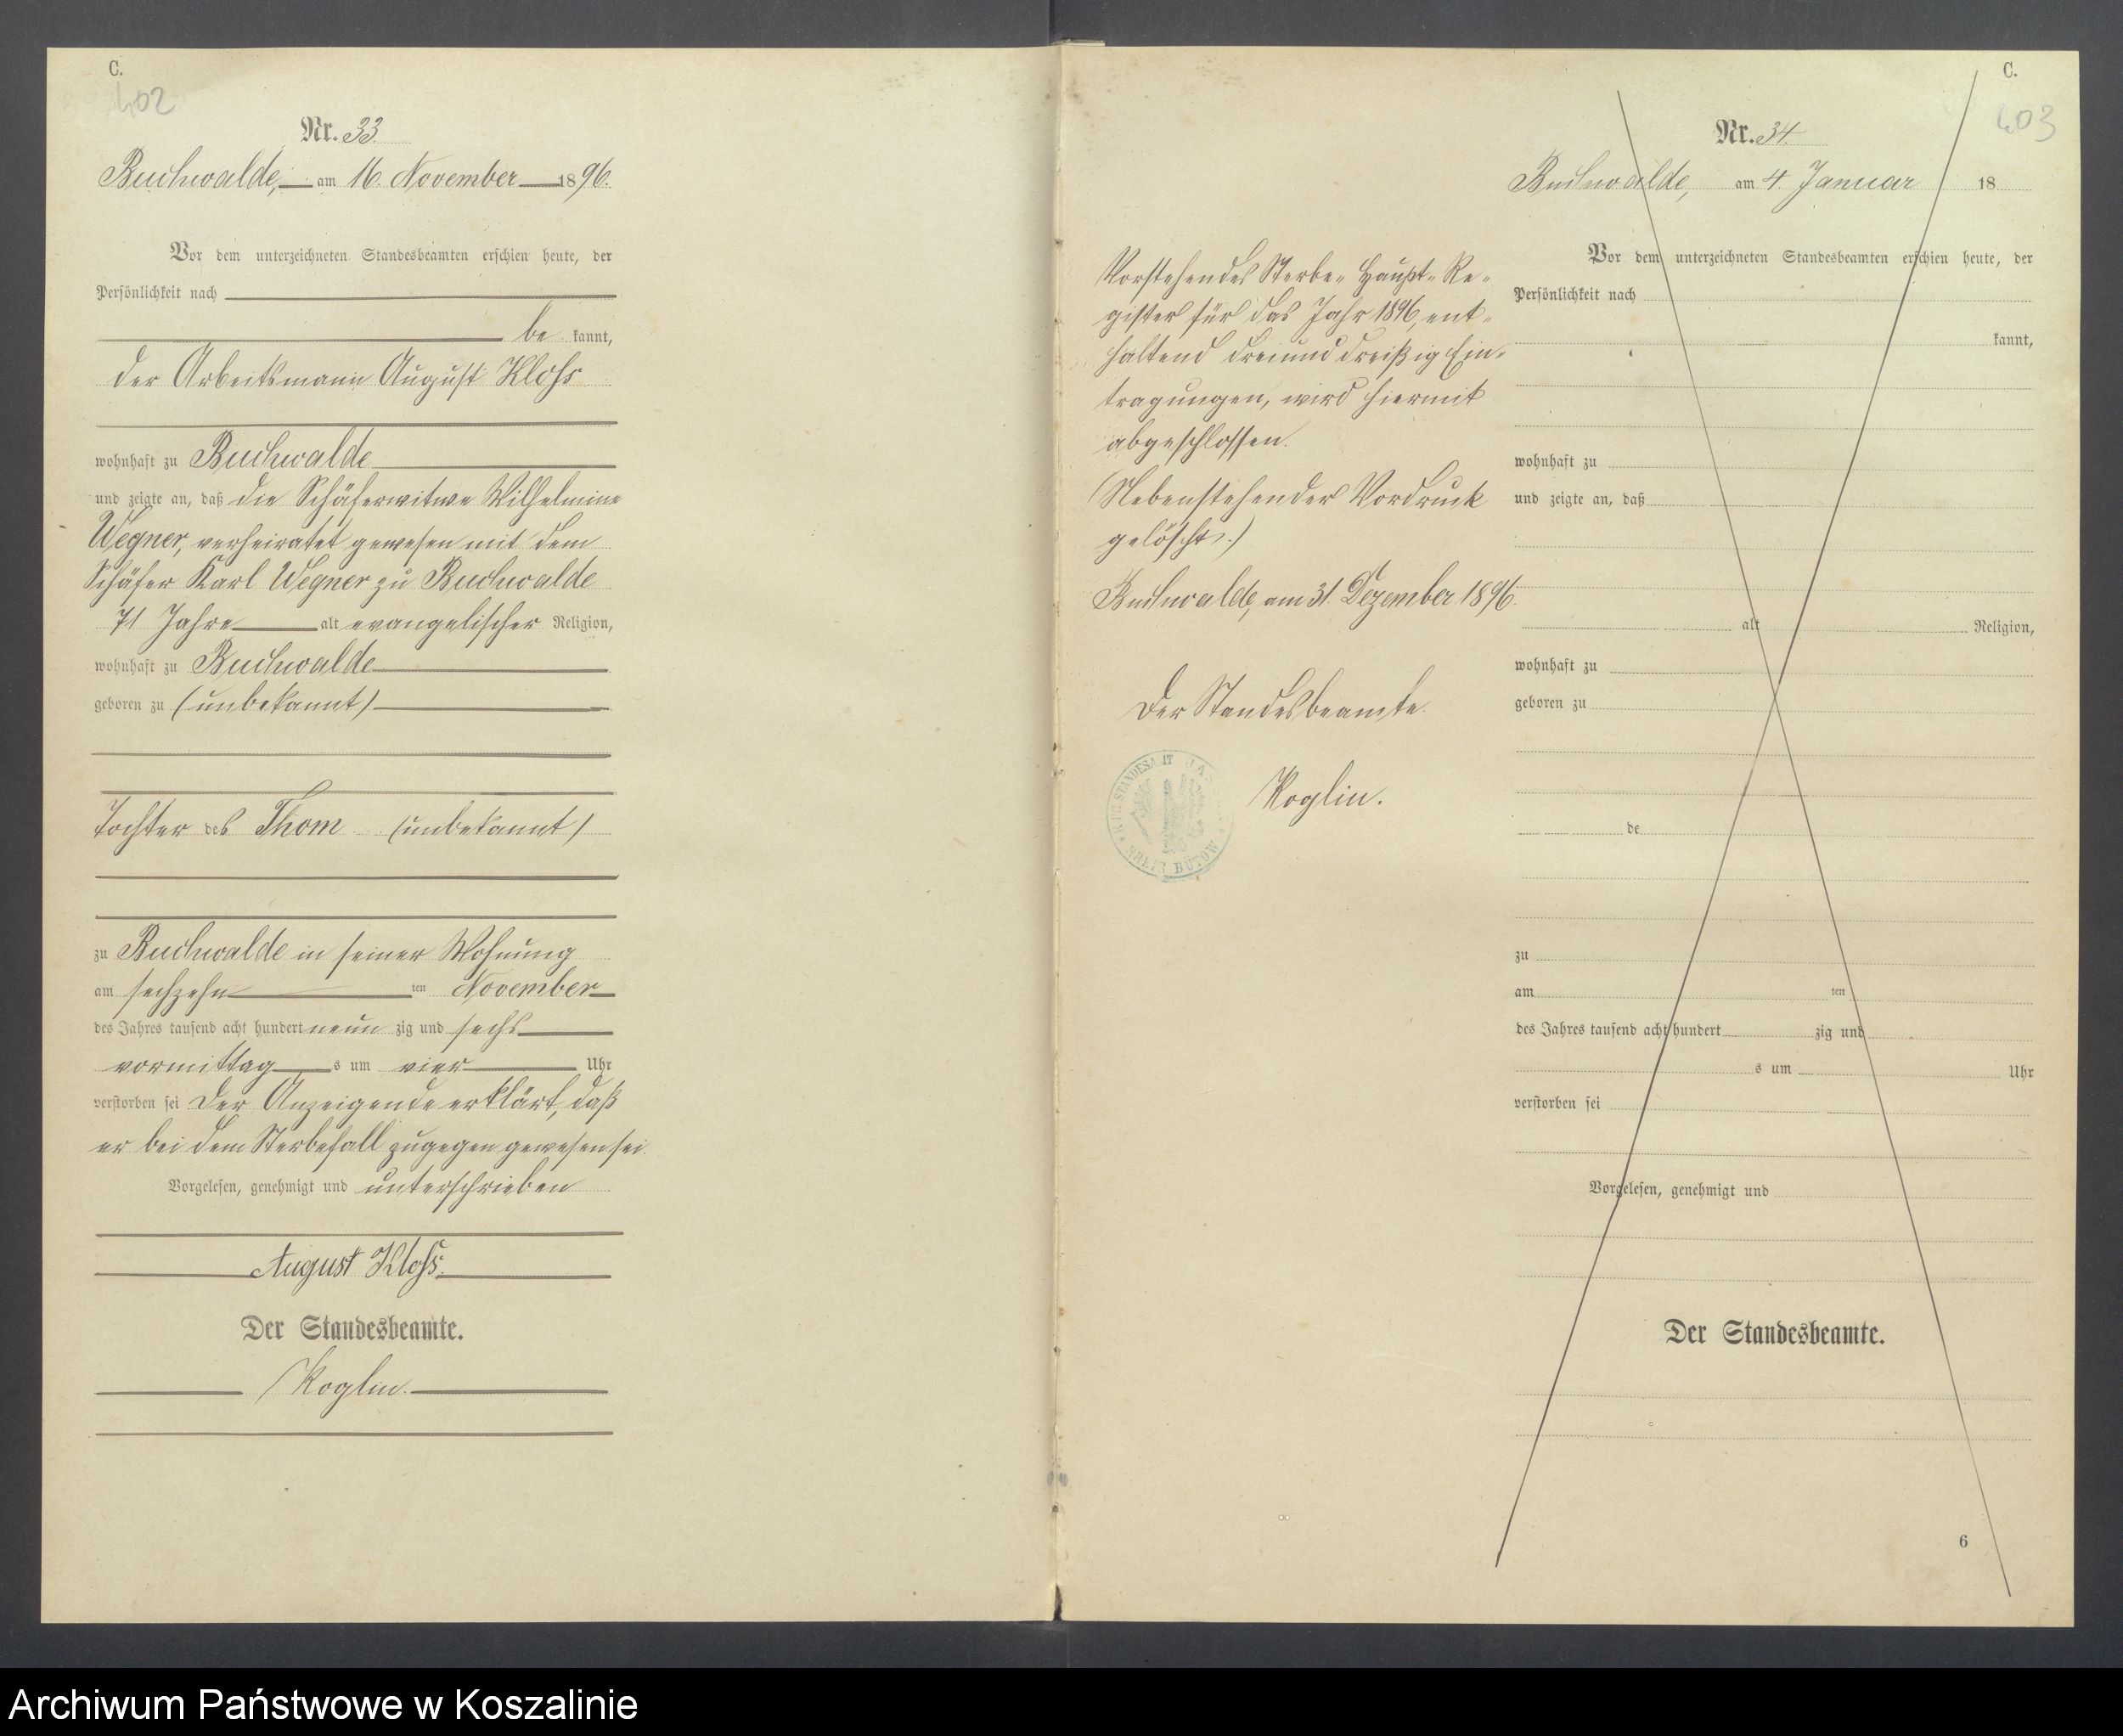 C.
402
Nr. 33.
Buchwalde, am 16. November 1896.
Vor dem unterzeichneten Standesbeamten erschien heute, der
Persönlichkeit nach
be kannt,
der Arbeitsmann August Kloss
wohnhaft zu Buchwalde
und zeigte an, daß die Schäferwitwe Wilhelmine
Wegner, verheiratet gewesen mit dem
Schäfer Karl Wegner zu Buchwalde
71 Jahre alt evangelischer Religion,
wohnhaft zu Buchwalde
geboren zu (unbekannt)
Tochter des Thom (unbekannt)
zu Buchwalde in seiner Wohnung
am sechzehn ten November
des Jahres tausend acht hundert neun zig und sechs
vormittag s um vier Uhr
verstorben sei Der Anzeigende erklärt, daß
er bei dem Sterbefall zugegen gewesen sei.
Vorgelesen, genehmigt und unterschrieben
August Kloss.
Der Standesbeamte.
Koglin.
Vorstehendes Sterbe-Haupt-Re-
gister für das Jahr 1896, ent-
haltend dreiunddreißig Ein-
tragungen, wird hiermit
abgeschlossen.
(Nebenstehender Vordruck
gelöscht.)
Buchwalde, am 31. Dezember 1896.
Der Standesbeamte.
Koglin.
STANDESAMT
KREIS BÜTOW
C.
403
Nr. 34.
Buchwalde, am 4. Januar 18
Vor dem unterzeichneten Standesbeamten erschien heute, der
Persönlichkeit nach
kannt,
wohnhaft zu
und zeigte an, daß
alt Religion,
wohnhaft zu
geboren zu
de
zu
am ten
des Jahres tausend acht hundert zig und
s um Uhr
verstorben sei
Vorgelesen, genehmigt und
Der Standesbeamte.
6
Archiwum Państwowe w Koszalinie